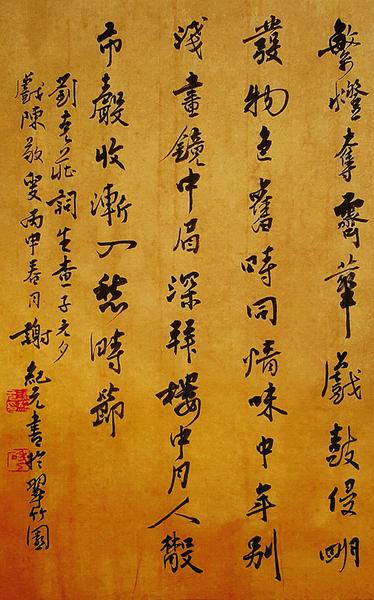 繁燈奪霽華戲鼓侵明
發物色舊時同情味中年別
淺畫鏡中眉深拜樓中月人散
市聲收漸入愁時節
劉克莊詞生查子元夕
戲陳敬叟丙申春月謝紀元書於翠竹園